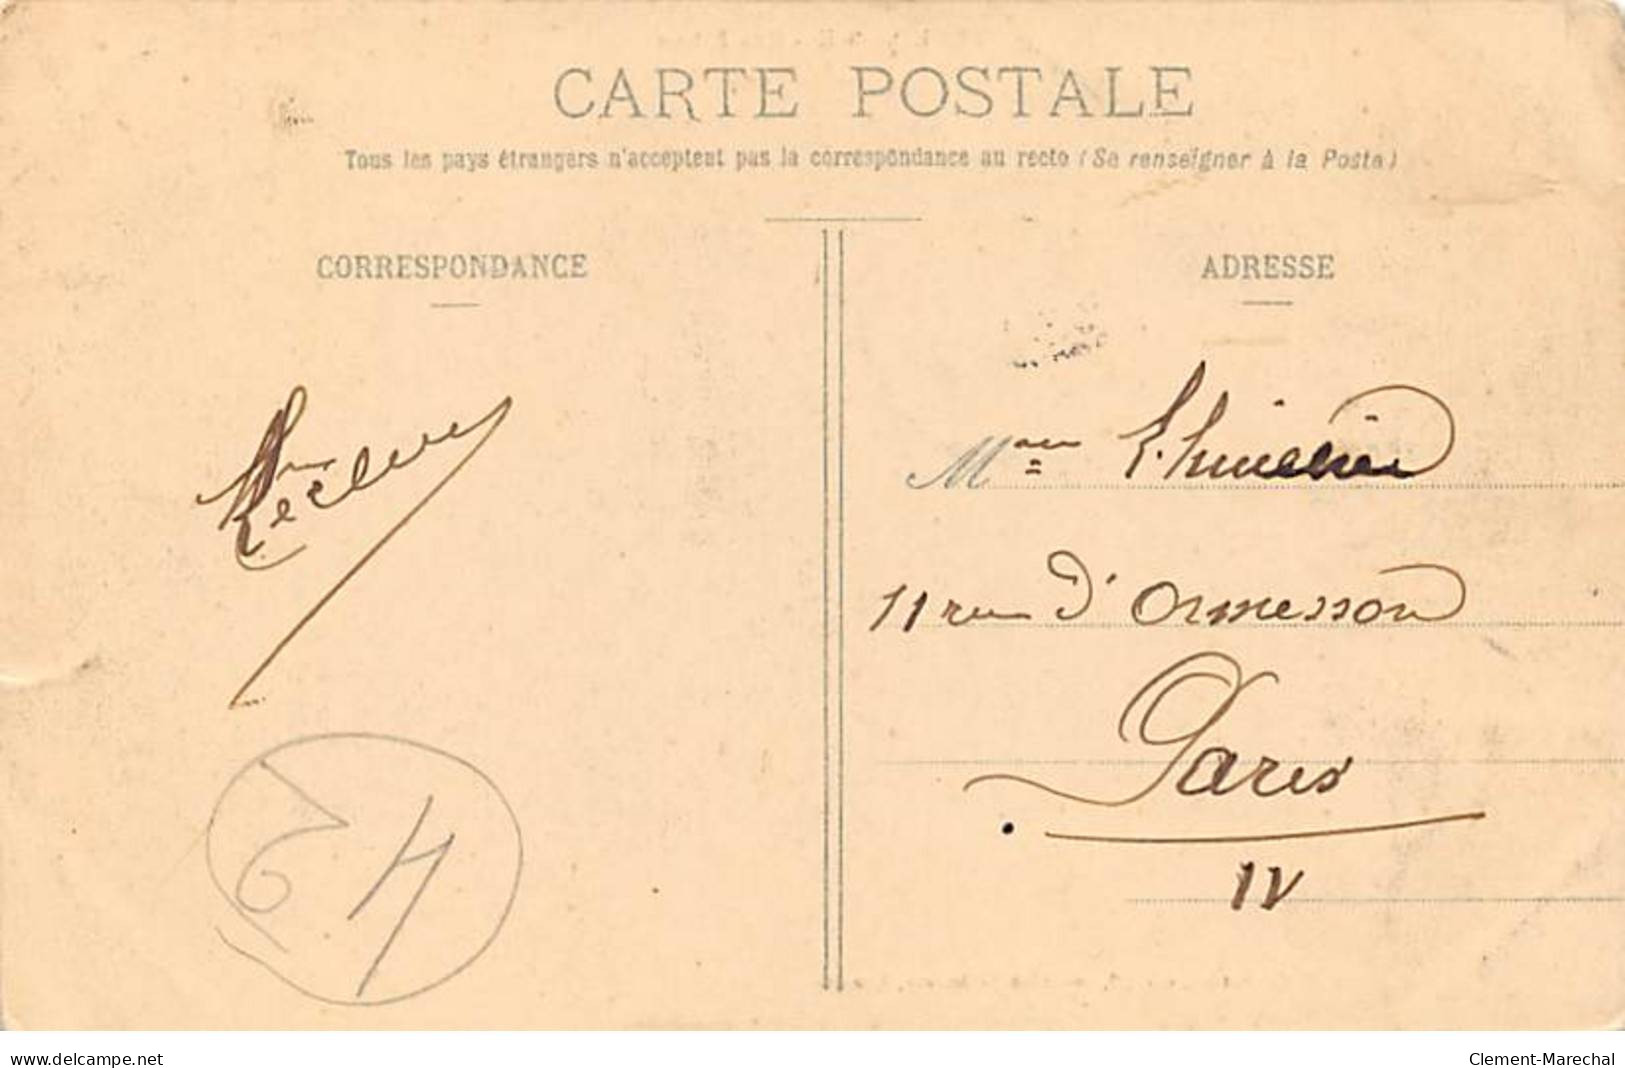 CARTE POSTALE
Tous les pays étrangers n'acceptent pas la correspondance au recto (Se renseigner à la Poste)
CORRESPONDANCE
ADRESSE
Leclerc
Mme
11 rue d'Ormesson
Paris
IV
www.delcampe.net
Clement-Marechal